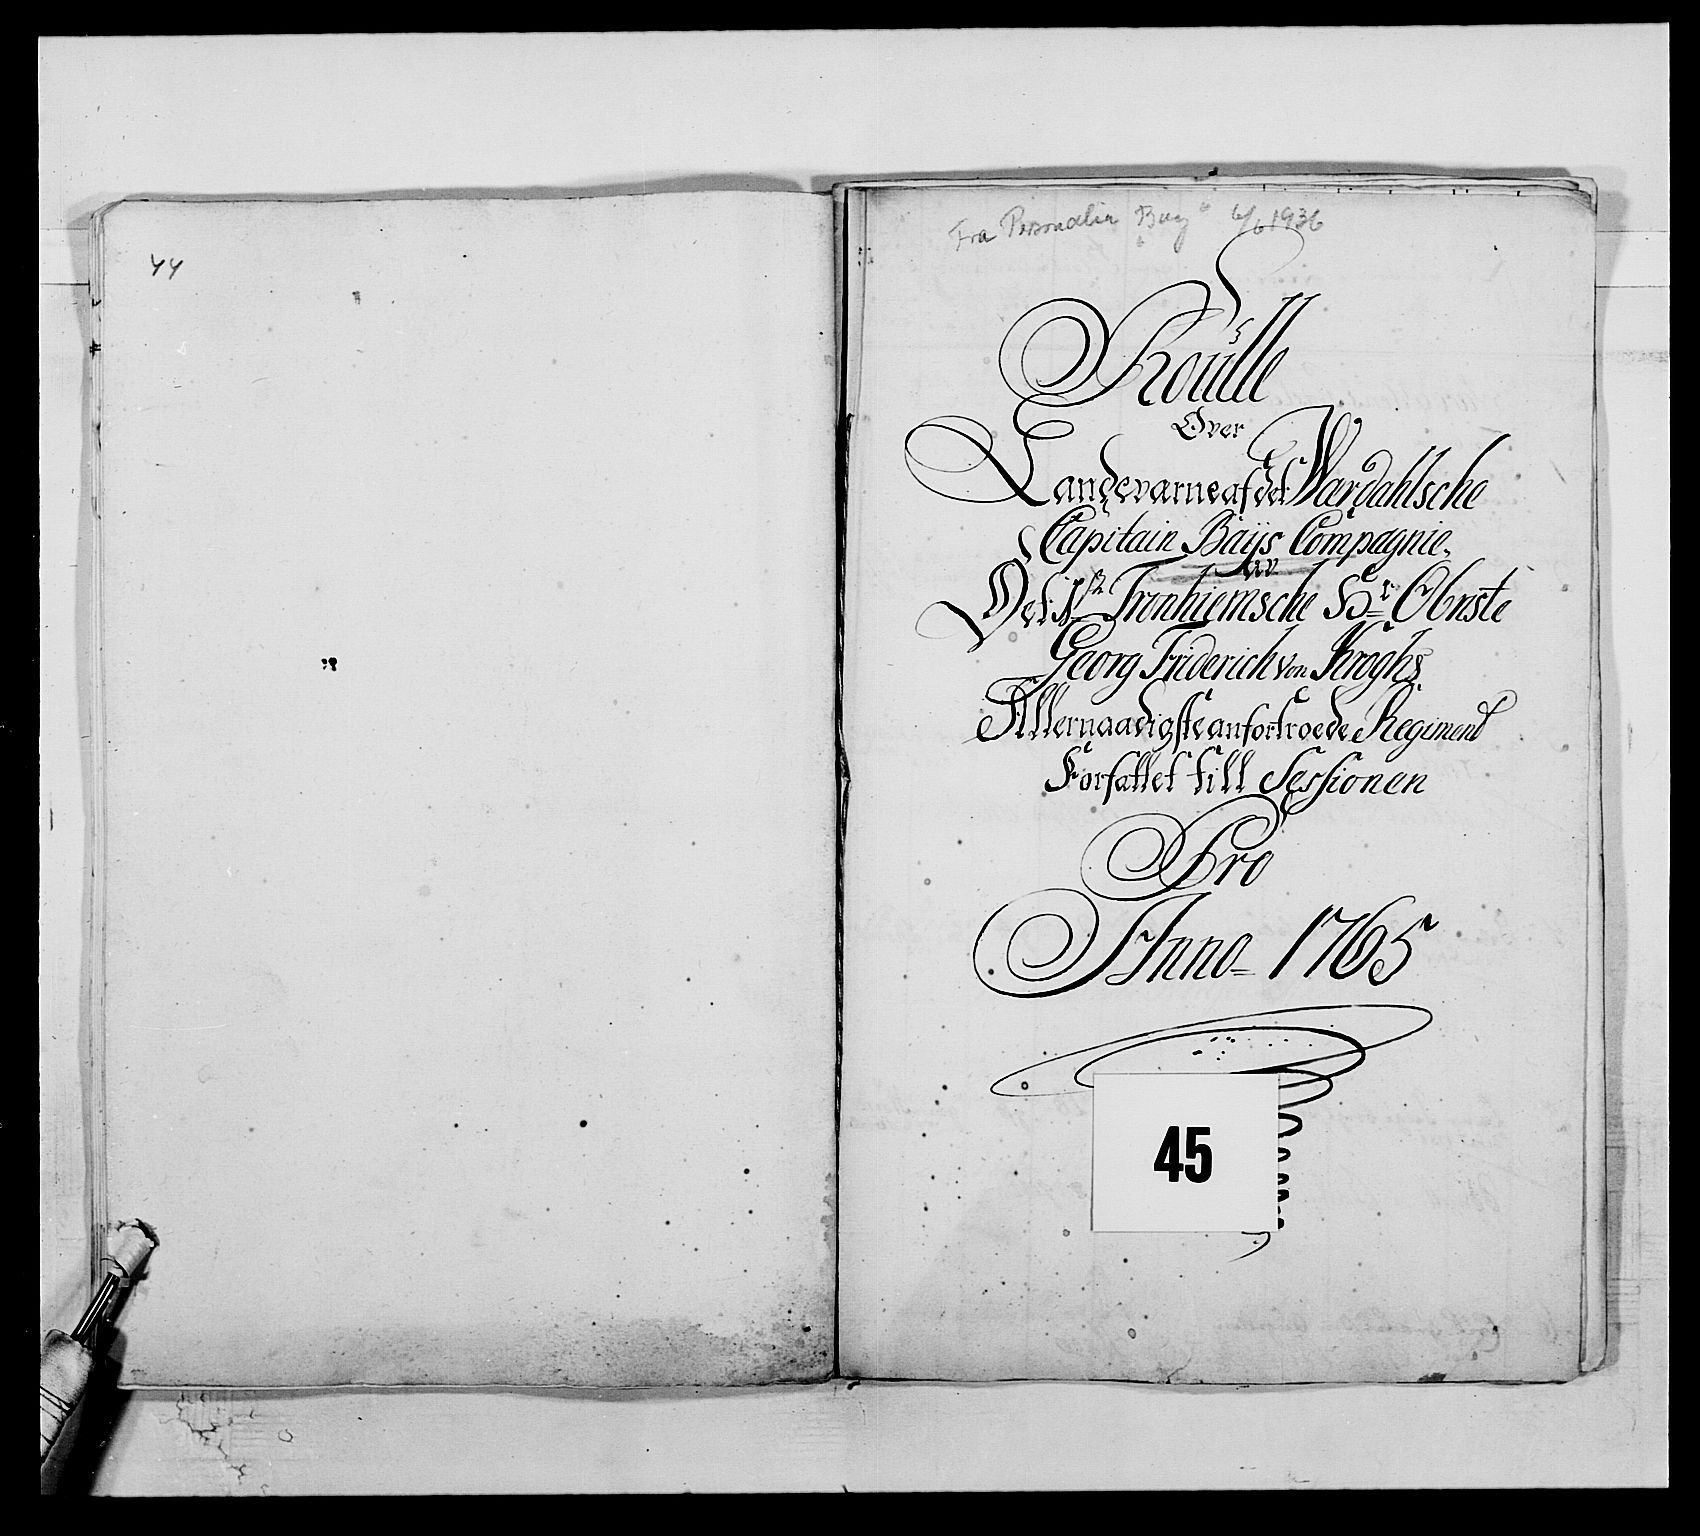 44
Fra Personalia "Bay" 6/6 1936
Roülle
Over
Landevarne af det Wærdahlsche
Capitain Baÿs Compagnie,
av
Det 1ste Tronhiemsche Hr Obriste
Georg Friderich von Kroghs
Allernaadigste anfortroede Regiment
Forfattet till Sessionen
Pro
Anno 1765
45